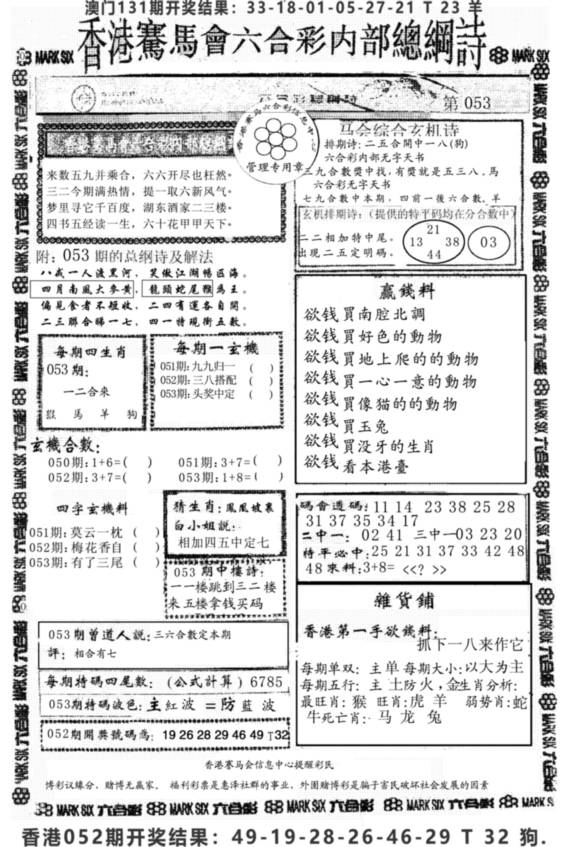 澳门131期开奖结果：33-18-01-05-27-21 T 23 羊
香港騫馬會六合彩内部總綱詩
MARK SIX
第 053
香港赛马会六合彩信息中心
管理专用章
来数五九并乘合，六六开尽也枉然。
三二今期满热情，提一取六新风气。
梦里寻它千百度，湖东酒家二三楼。
四书五经读一生，六十花甲甲天下。
附：053 期的总纲诗及解法
八戒一人渡黑河，笑傲江湖畅区海。
四月南風大麥黄，龍頭蛇尾猴為王。
偏見食者不短收，二四有運各自開。
二三聯合睇一七，四一特現衝五數。
马会综合玄机诗
排期诗：二五合開中一八(狗)
六合彩内部无字天书
三九合數獎中找，有獎就是五三八、馬
六合彩无字天书
七九合數中本期，四前一後六合數、羊
玄机排期诗：(提供的特平码均在分合数中)
二二相加特中尾。
出现二五定明码。
21
13 38
44
03
每期四生肖
053期：
一二合來
馬 羊 狗
每期一玄機
051期：九九归一 ( )
052期：三八搭配 ( )
053期：头奖中定 ( )
玄機合數：
050期：1+6=( ) 051期：3+7=( )
052期：3+7=( ) 053期：1+8=( )
贏錢料
欲钱買南腔北調
欲钱買好色的動物
欲钱買地上爬的的動物
欲钱買一心一意的動物
欲钱買像猫的的動物
欲钱買玉兔
欲钱買没牙的生肖
欲钱看本港臺
四字玄機料
051期：莫云一枕 ( )
052期：梅花香自 ( )
053期：有了三尾 ( )
猜生肖：鳳凰披裏
白小姐説：
相加四五中定七
053 期中樓詩：
一一楼跳到三二楼
来五楼拿钱买码
碼會道碼：11 14 23 38 25 28
31 37 35 34 17
二中一：02 41 三中一03 23 20
特平必中：25 21 31 37 33 42 48
48來料：3+8= <<? >>
053期曾道人説：三六合數定本期
評：相合有七
每期特碼四尾數：(公式計算) 6785
053期特码波色：主紅波 = 防藍波
052期開獎號碼為：19 26 28 29 46 49 T32
雜貨鋪
香港第一手欲錢料：
抓下一八来作它
每期单双：主单 每期大小：以大为主
每期五行：主土防火，金生肖分析：
最旺肖：猴 旺肖：虎 羊 弱势肖：蛇
牛死亡肖：马 龙 兔
香港赛马会信息中心提醒彩民
博彩议缘分，赌博无赢家。福利彩票是惠泽社群的事业，外围赌博彩是骗子害民破坏社会发展的因素
MARK SIX 六合彩 MARK SIX 六合彩 MARK SIX 六合彩 MARK SIX 六合彩 MARK S
香港052期开奖结果：49-19-28-26-46-29 T 32 狗.